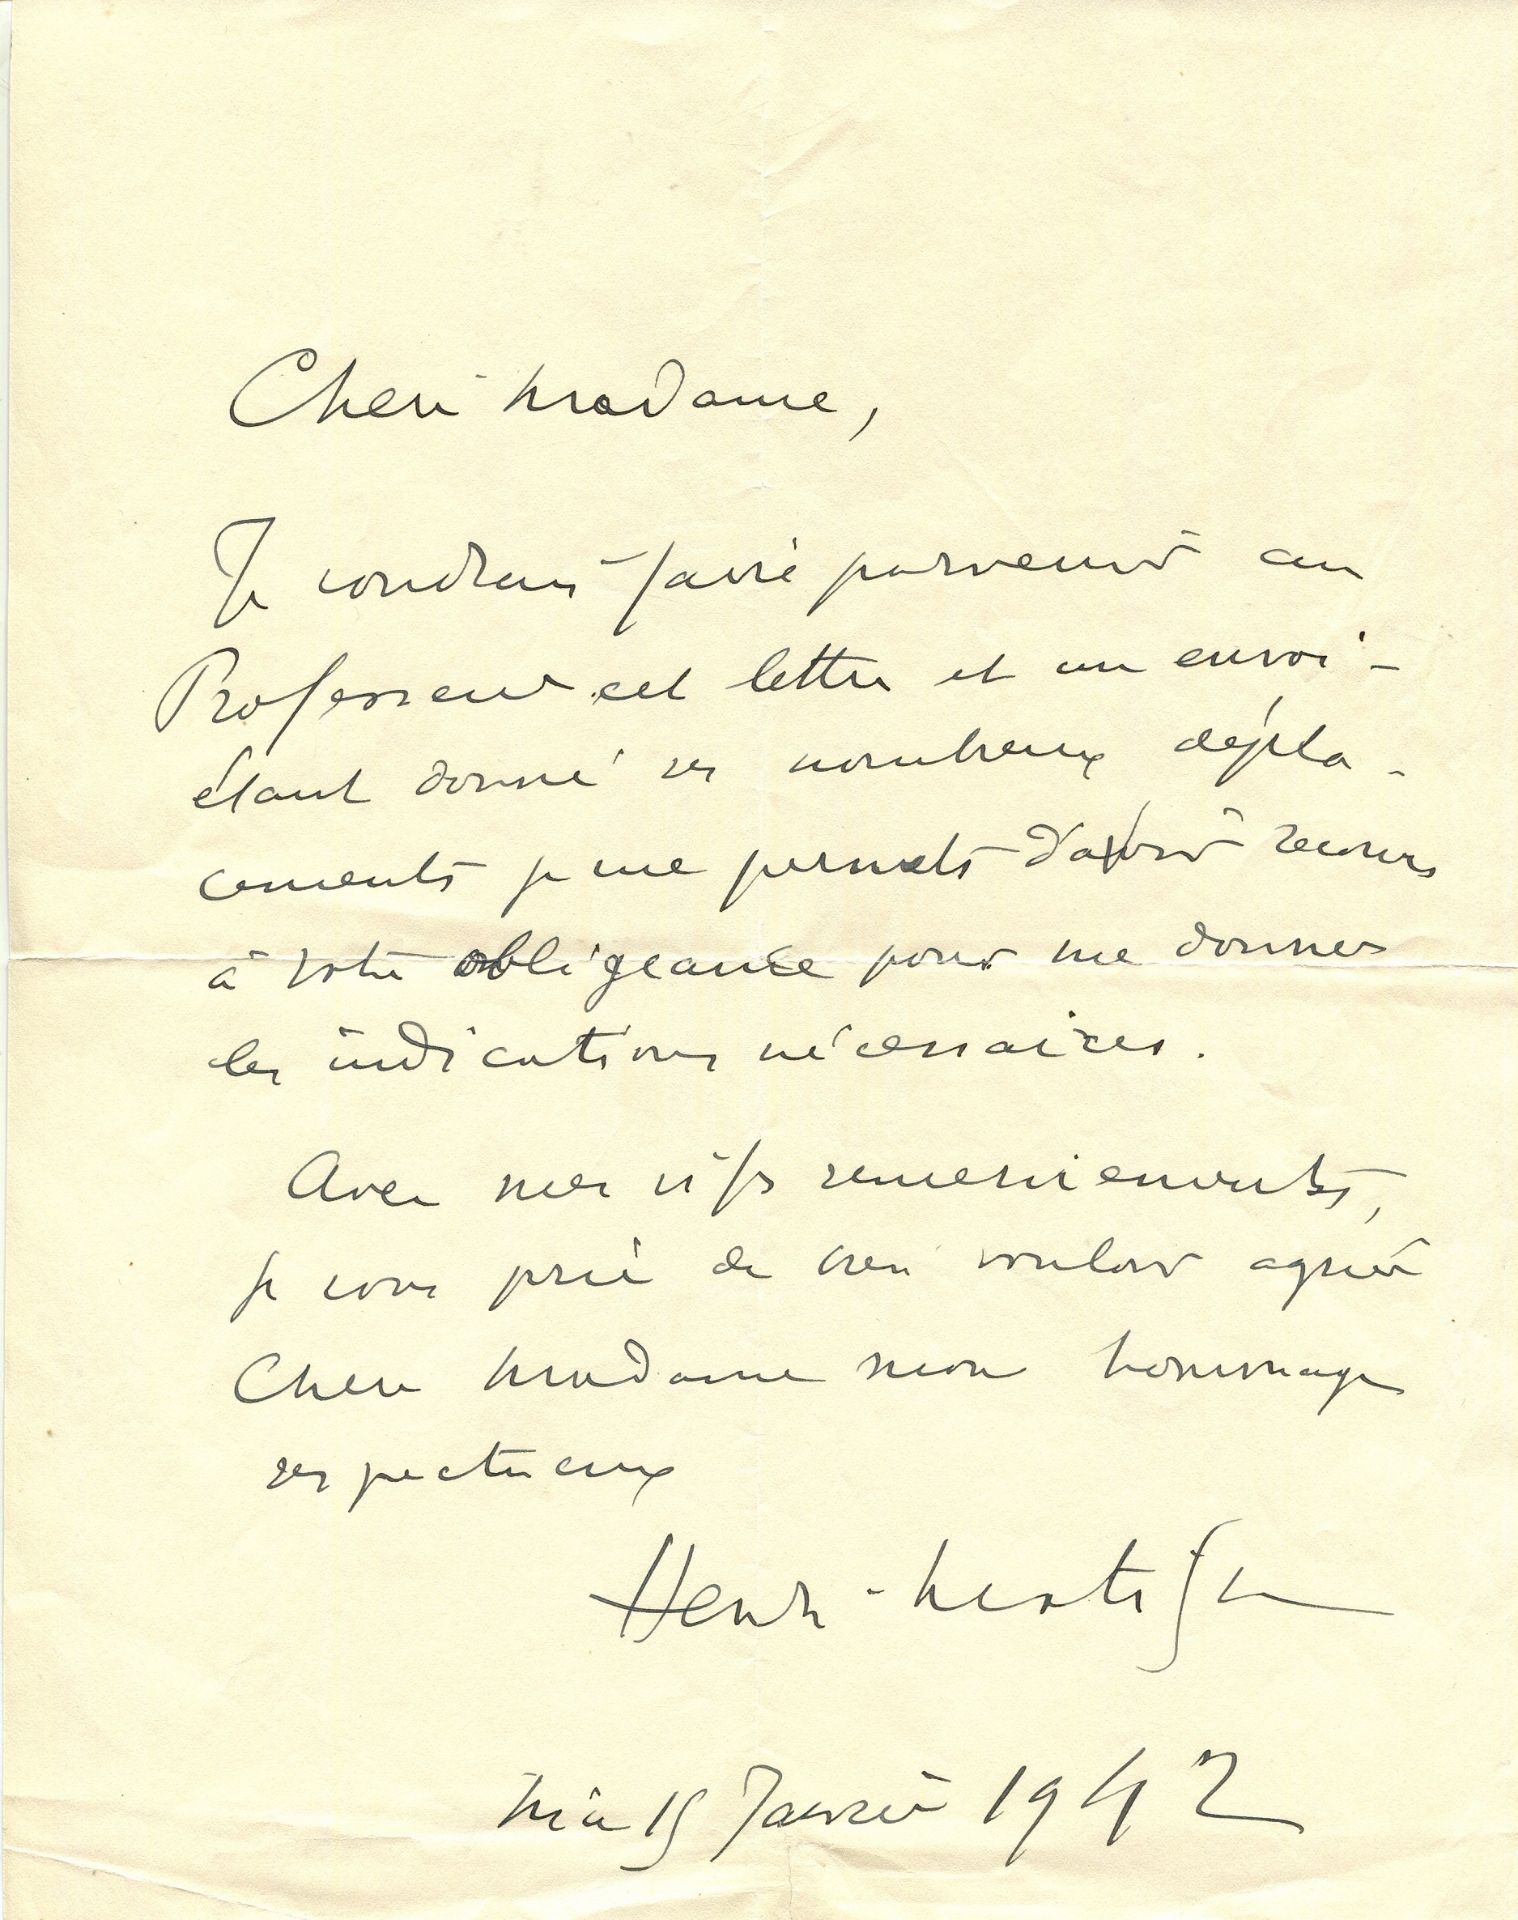 Chère Madame,
Je voudrais faire parvenir au
Professeur cet lettre et un envoi -
étant donné ses nombreux dépla-
cements je me permets d'avoir recours
à votre obligeance pour me donner
les indications nécessaires.
Avec mes vifs remerciements,
je vous prie de bien vouloir agréer
Chère Madame mon hommage
respectueux
Henri-Matisse
15 Janvier 1942